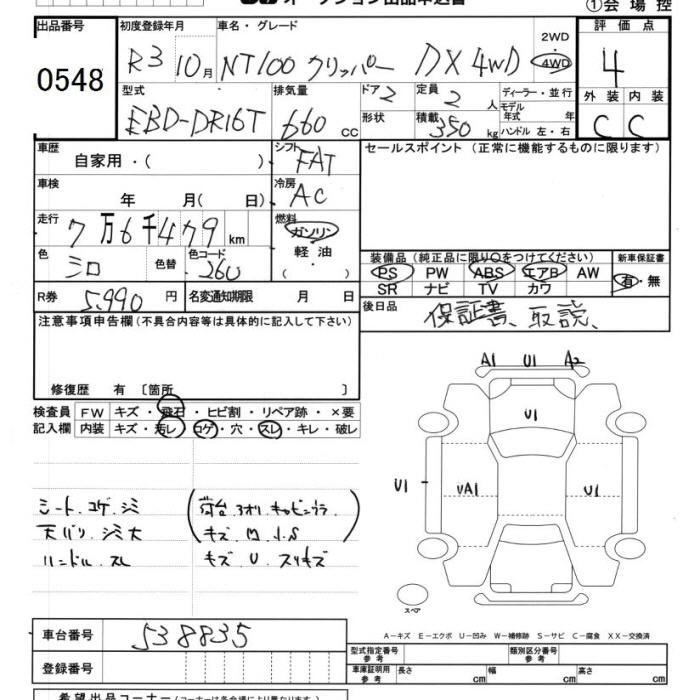 オークション出品申込書
①会場控
出品番号 0548
初度登録年月 R3 10月
車名・グレード NT100 クリッパー DX 4WD
2WD
4WD
評価点 4
外装 C 内装 C
型式 EBD-DR16T
排気量 660 cc
ドア 2
形状
定員 2 人
積載 350 kg
ディーラー・並行
モデル年式 年
ハンドル 左・右
車歴 自家用・( )
シフト FAT
セールスポイント (正常に機能するものに限ります)
車検 年 月( 日)
冷房 AC
走行 7万6千479 km
燃料 ガソリン
軽油
・( )
色 シロ 色替
色コード 260
装備品 (純正品に限り○をつけてください)
新車保証書
PS PW ABS エアB AW
SR ナビ TV カワ
有・無
R券 5,990円
名変通知期限 月 日
後日品 保証書、取説、
注意事項申告欄 (不具合内容等は具体的に記入して下さい)
修復歴 有 〔箇所 〕
検査員記入欄
FW キズ・飛石・ヒビ割・リペア跡・×要
内装 キズ・汚レ・コゲ・穴・スレ・キレ・破レ
A1 U1 A2
U1
U1 UA1 U1
シート.コゲ.シミ
天バリ.シミ大
ハンドル.スレ
荷台 3オリ キャビンウラ
キズ M.I.S
キズ U スリキズ
スペア
A-キズ E-エクボ U-凹み W-補修跡 S-サビ C-腐食 XX-交換済
車台番号 538835
登録番号
型式指定番号 参考
類別区分番号 参考
車庫証明用 参考 長さ cm 幅 cm 高さ cm
希望出品コーナー (コーナーは各会場により異なります)